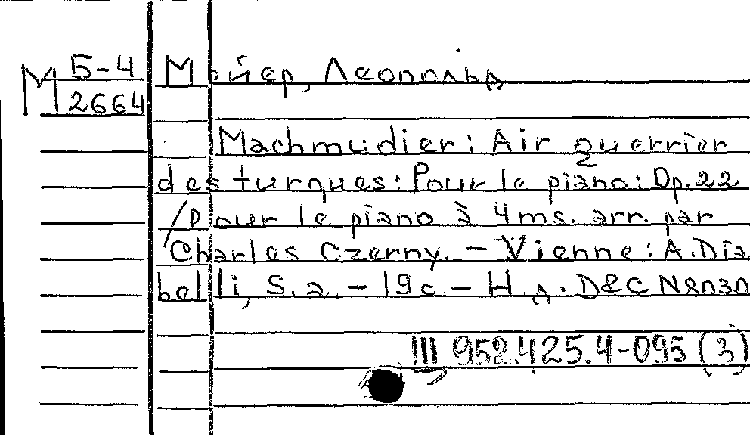 М Б-4
2664
Мейер, Леопольд
Machmudier: Air guerrier
des turques: Pour le piano: Op. 22
/Pour le piano à 4ms. arr. par
Charles Czerny. - Vienne: A. Dia
belli, S.a. - 19c - Н.д. D&C N8030
III 952.425.4-095 (3)